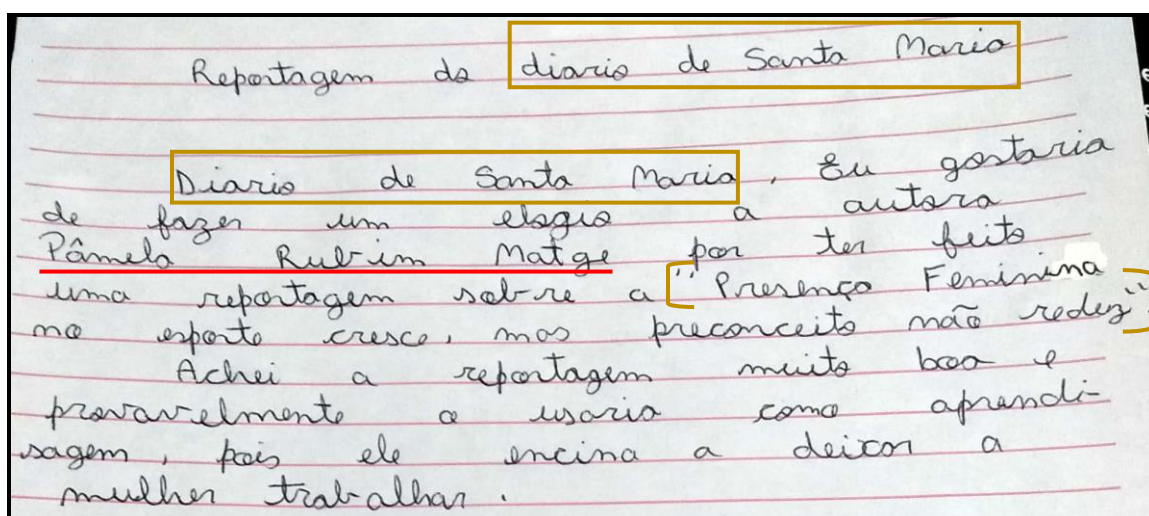 Reportagem do diario de Santa Maria
Diario de Santa Maria, Eu gostaria
de fazer um elogio a autora
Pâmela Rubim Matge por ter feito
uma reportagem sobre a "Presença Feminina
no esporte cresce, mas preconceito não reduz"
Achei a reportagem muito boa e
provavelmente a usaria como aprendi-
sagem, pois ele encina a deixar a
mulher trabalhar.